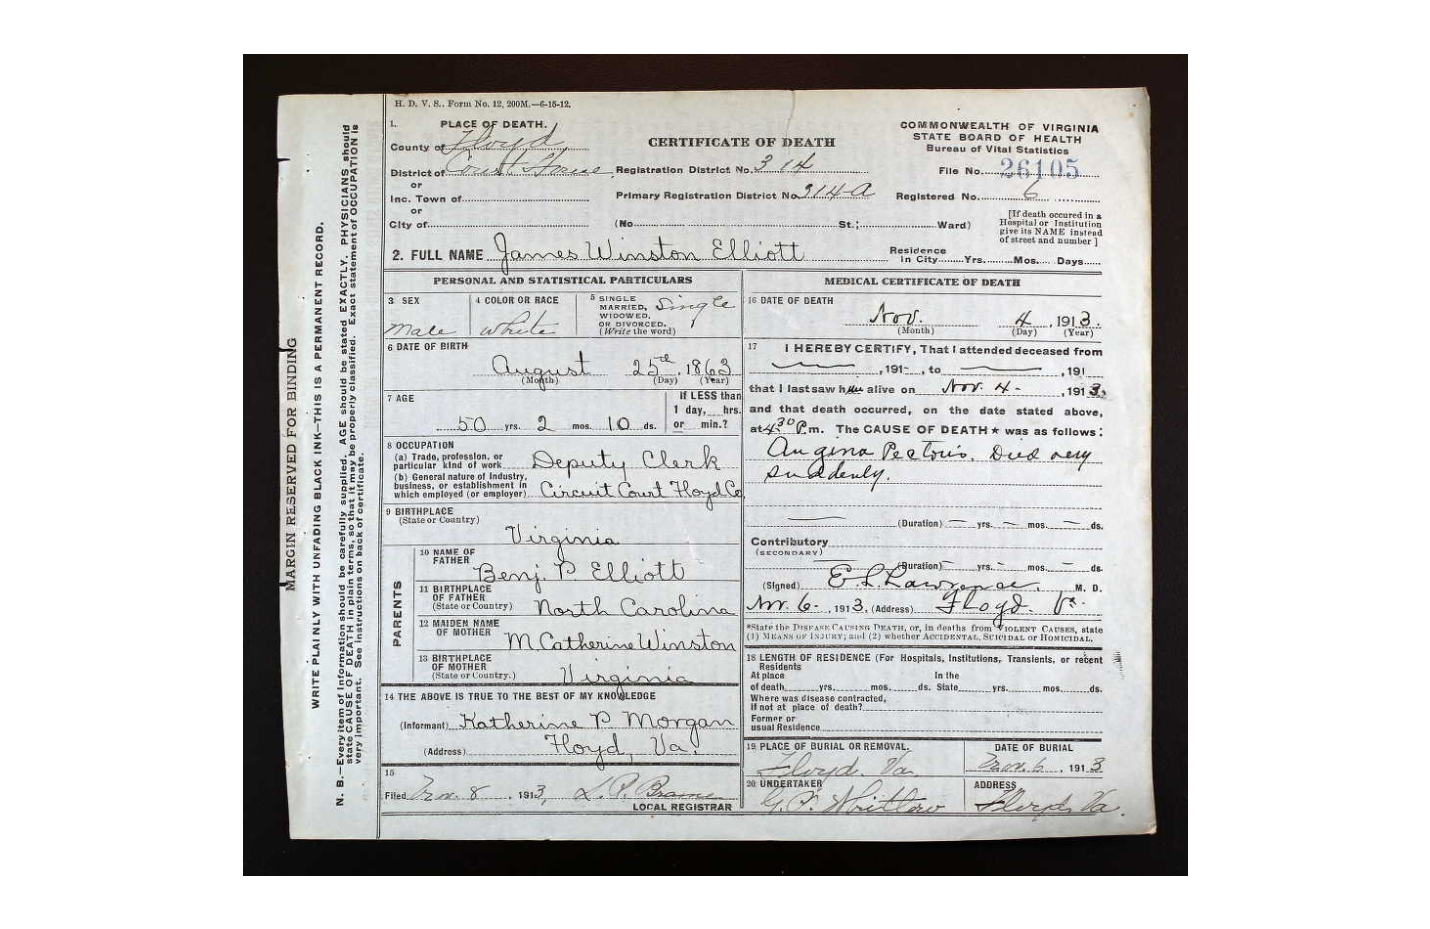 H. D. V. S., Form No. 12, 200M.—6-15-12.
1. PLACE OF DEATH.
County of Floyd
District of Court House
or
Inc. Town of
or
City of
CERTIFICATE OF DEATH
Registration District No. 314
Primary Registration District No. 314A
(No. St.; Ward)
COMMONWEALTH OF VIRGINIA
STATE BOARD OF HEALTH
Bureau of Vital Statistics
File No. 26105
Registered No. 6
[If death occured in a
Hospital or Institution
give its NAME instead
of street and number]
2. FULL NAME James Winston Elliott
Residence
In City Yrs. Mos. Days
PERSONAL AND STATISTICAL PARTICULARS
3 SEX
male
4 COLOR OR RACE
white
5 SINGLE
MARRIED,
WIDOWED,
OR DIVORCED.
(Write the word)
Single
6 DATE OF BIRTH
August 25th, 1863
(Month) (Day) (Year)
7 AGE
50 yrs. 2 mos. 10 ds.
If LESS than
1 day, hrs.
or min.?
8 OCCUPATION
(a) Trade, profession, or
particular kind of work Deputy Clerk
(b) General nature of industry,
business, or establishment in
which employed (or employer) Circuit Court Floyd Co
9 BIRTHPLACE
(State or Country)
Virginia
PARENTS
10 NAME OF
FATHER
Benj. P. Elliott
11 BIRTHPLACE
OF FATHER
(State or Country) North Carolina
12 MAIDEN NAME
OF MOTHER
M. Catherine Winston
13 BIRTHPLACE
OF MOTHER
(State or Country.) Virginia
14 THE ABOVE IS TRUE TO THE BEST OF MY KNOWLEDGE
(Informant) Katherine P. Morgan
(Address) Floyd, Va.
15
Filed Nov. 8, 1913, L. P. Brame
LOCAL REGISTRAR
MEDICAL CERTIFICATE OF DEATH
16 DATE OF DEATH
Nov. 4, 1913
(Month) (Day) (Year)
17 I HEREBY CERTIFY, That I attended deceased from
, 191 , to , 191
that I last saw him alive on Nov. 4 - , 1913,
and that death occurred, on the date stated above,
at 4 30 P.m. The CAUSE OF DEATH * was as follows:
Angina Pectoris. Died very
suddenly.
(Duration) — yrs. — mos. — ds.
Contributory
(SECONDARY)
(Duration) — yrs. — mos. — ds.
(Signed) E. L. Lawrence, M. D.
Nov. 6 - , 1913, (Address) Floyd Va.
*State the DISEASE CAUSING DEATH, or, in deaths from VIOLENT CAUSES, state
(1) MEANS OF INJURY; and (2) whether ACCIDENTAL, SUICIDAL or HOMICIDAL.
18 LENGTH OF RESIDENCE (For Hospitals, Institutions, Transients, or recent
Residents
At place In the
of death yrs. mos. ds. State yrs. mos. ds.
Where was disease contracted,
if not at place of death?
Former or
usual Residence
19 PLACE OF BURIAL OR REMOVAL.
Floyd, Va
DATE OF BURIAL
Nov. 6, 1913
20 UNDERTAKER
G. F. Whitlow
ADDRESS
Floyd, Va.
MARGIN RESERVED FOR BINDING
WRITE PLAINLY WITH UNFADING BLACK INK—THIS IS A PERMANENT RECORD.
N. B.—Every item of information should be carefully supplied. AGE should be stated EXACTLY. PHYSICIANS should
state CAUSE OF DEATH in plain terms, so that it may be properly classified. Exact statement of OCCUPATION is
very important. See instructions on back of certificate.